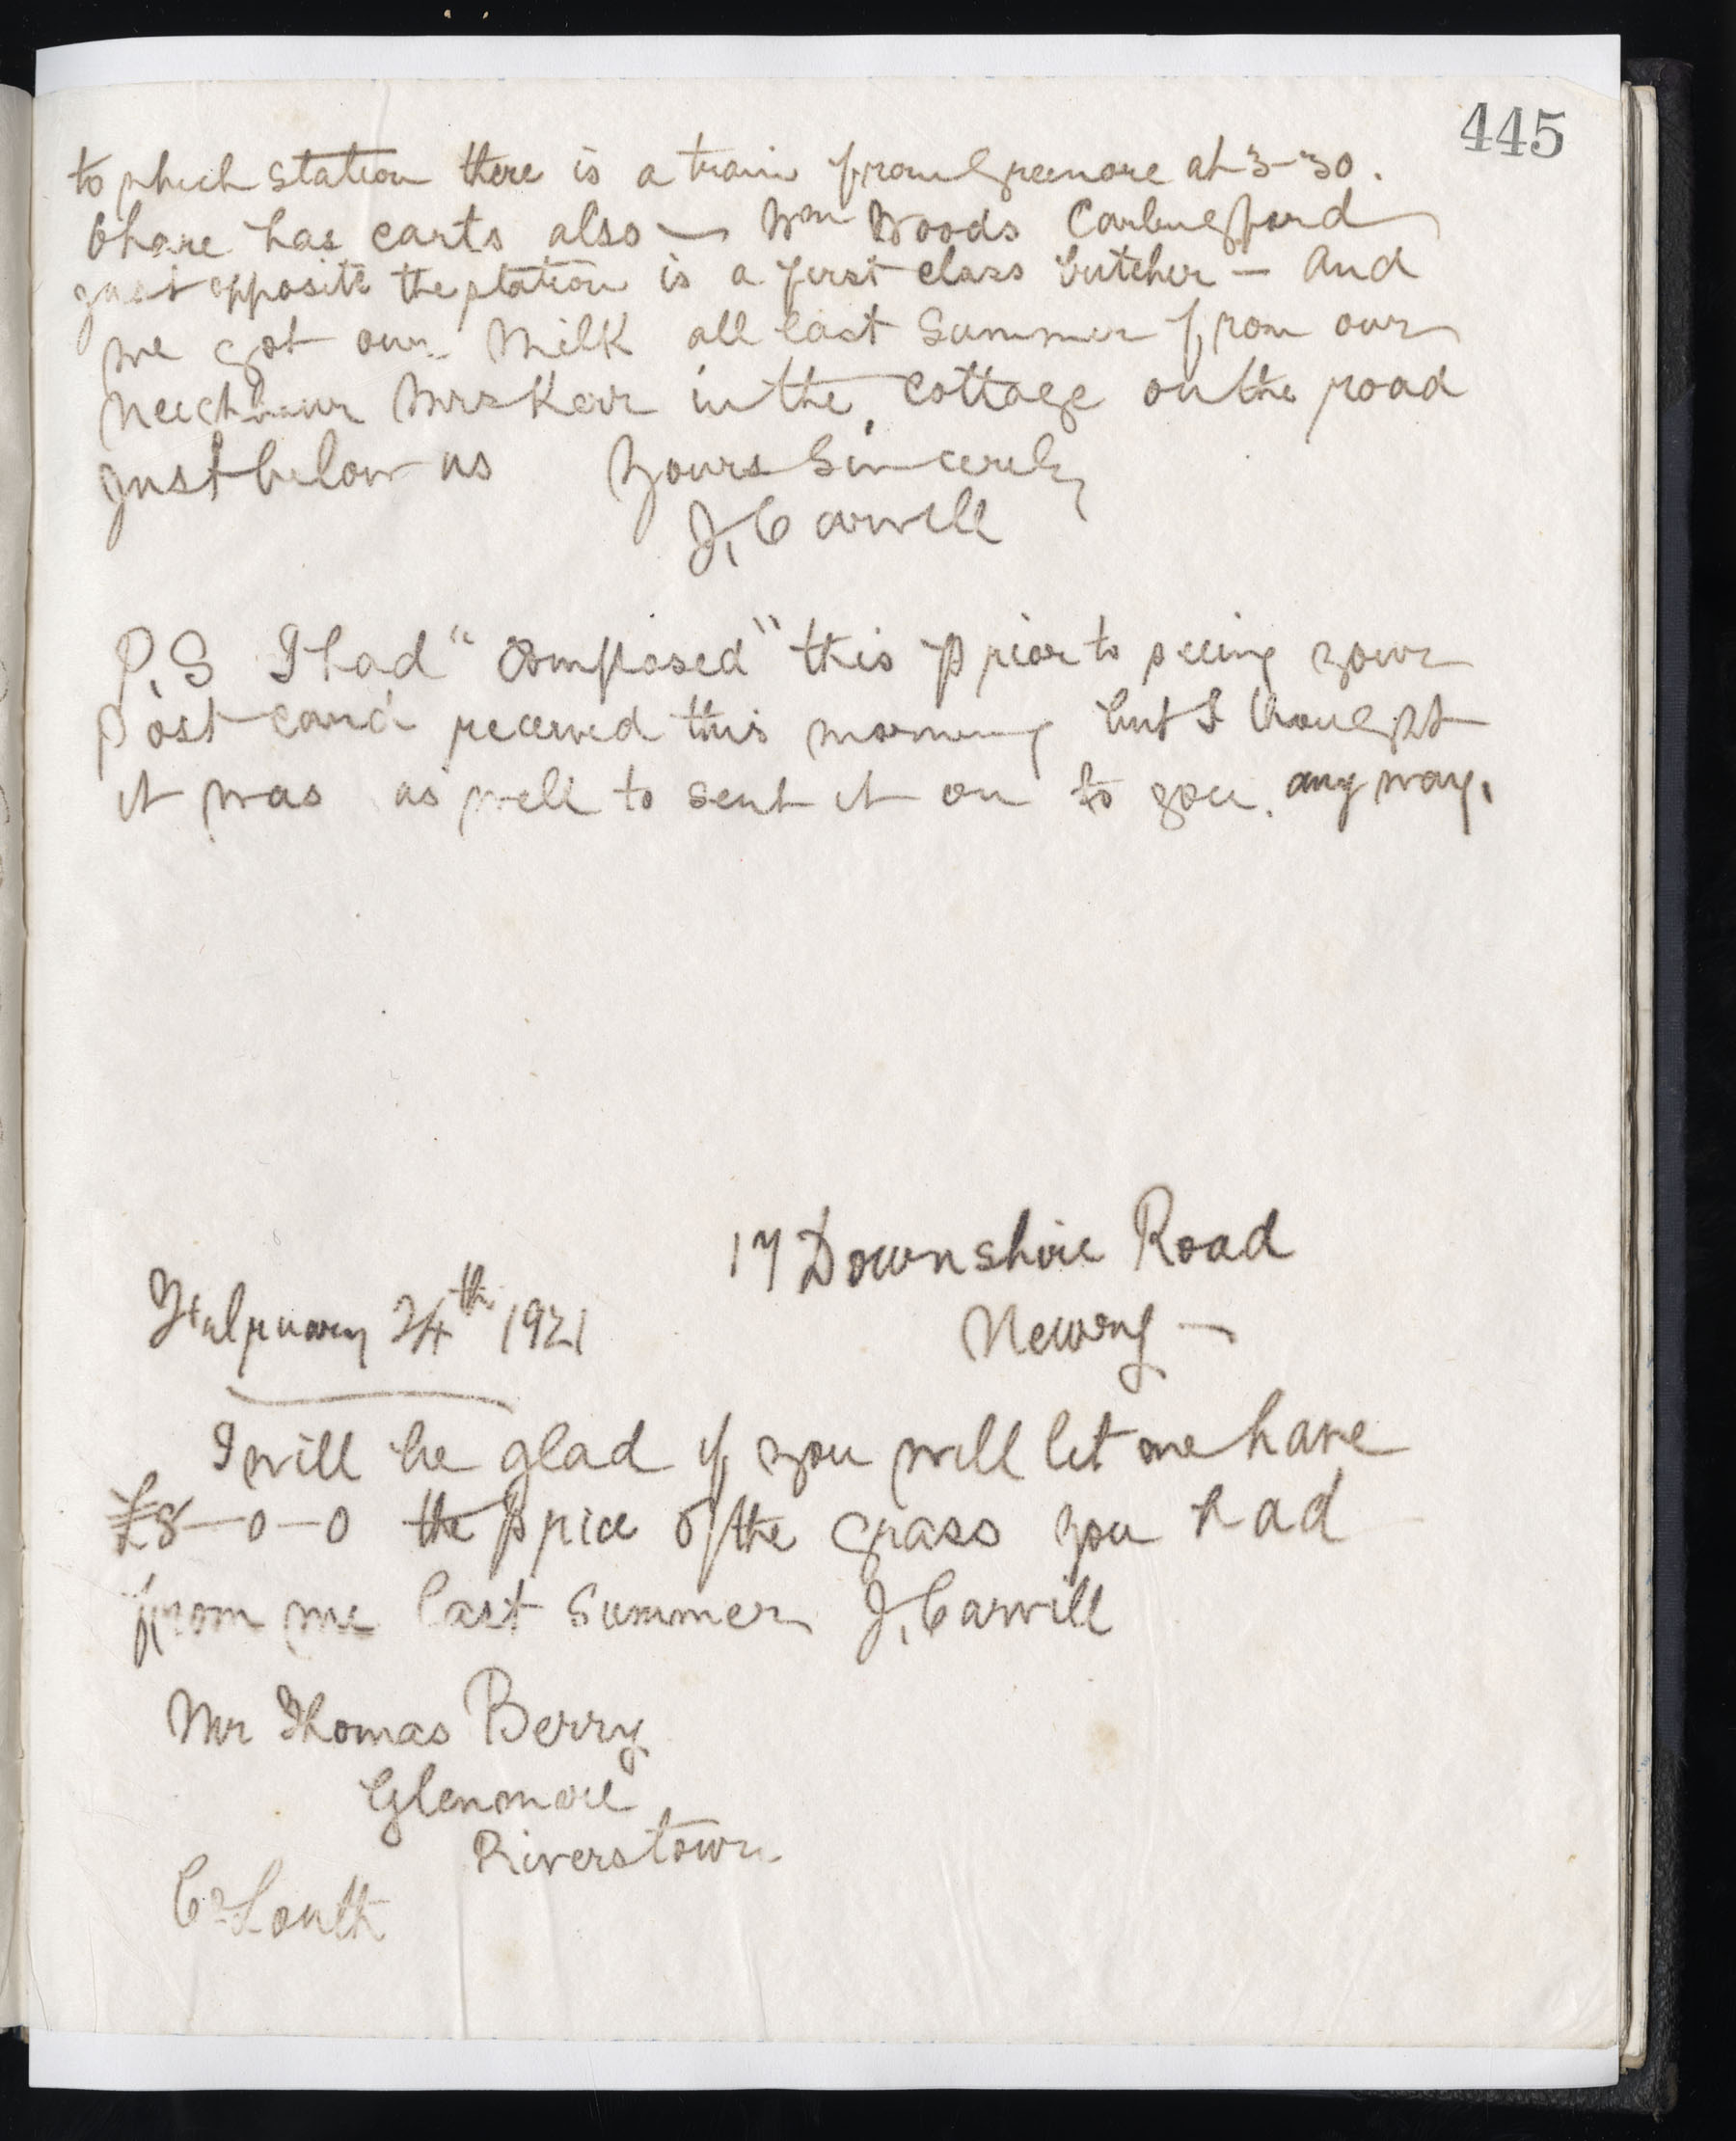 445
to which station there is a train from Greenore at 3-30.
O'hare has carts also — Wm Woods Carlingford
just opposite the station is a first class butcher — And
we got our Milk all last Summer from our
Neighbour Mrs Kerr in the cottage on the road
just below us Yours Sincerely
J. Carvill
P.S I had "composed" this prior to seeing your
Post card received this morning but I thought
it was as well to sent it on to you. any way.
17 Downshire Road
Newry —
February 24th 1921
I will be glad if you will let me have
£8—0—0 the price of the grass you had
from me last Summer J. Carvill
Mr Thomas Berry
Glenmore
Riverstown
Co Louth